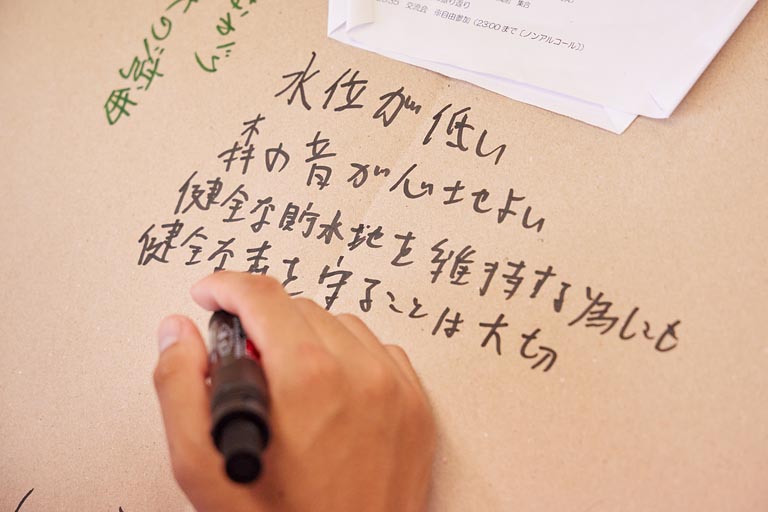 振り返り
集合
交流会 ※自由参加（23:00まで［ノンアルコール］）
水位が低い
森の音が心地よい
健全な貯水地を維持する為にも
健全な森を守ることは大切